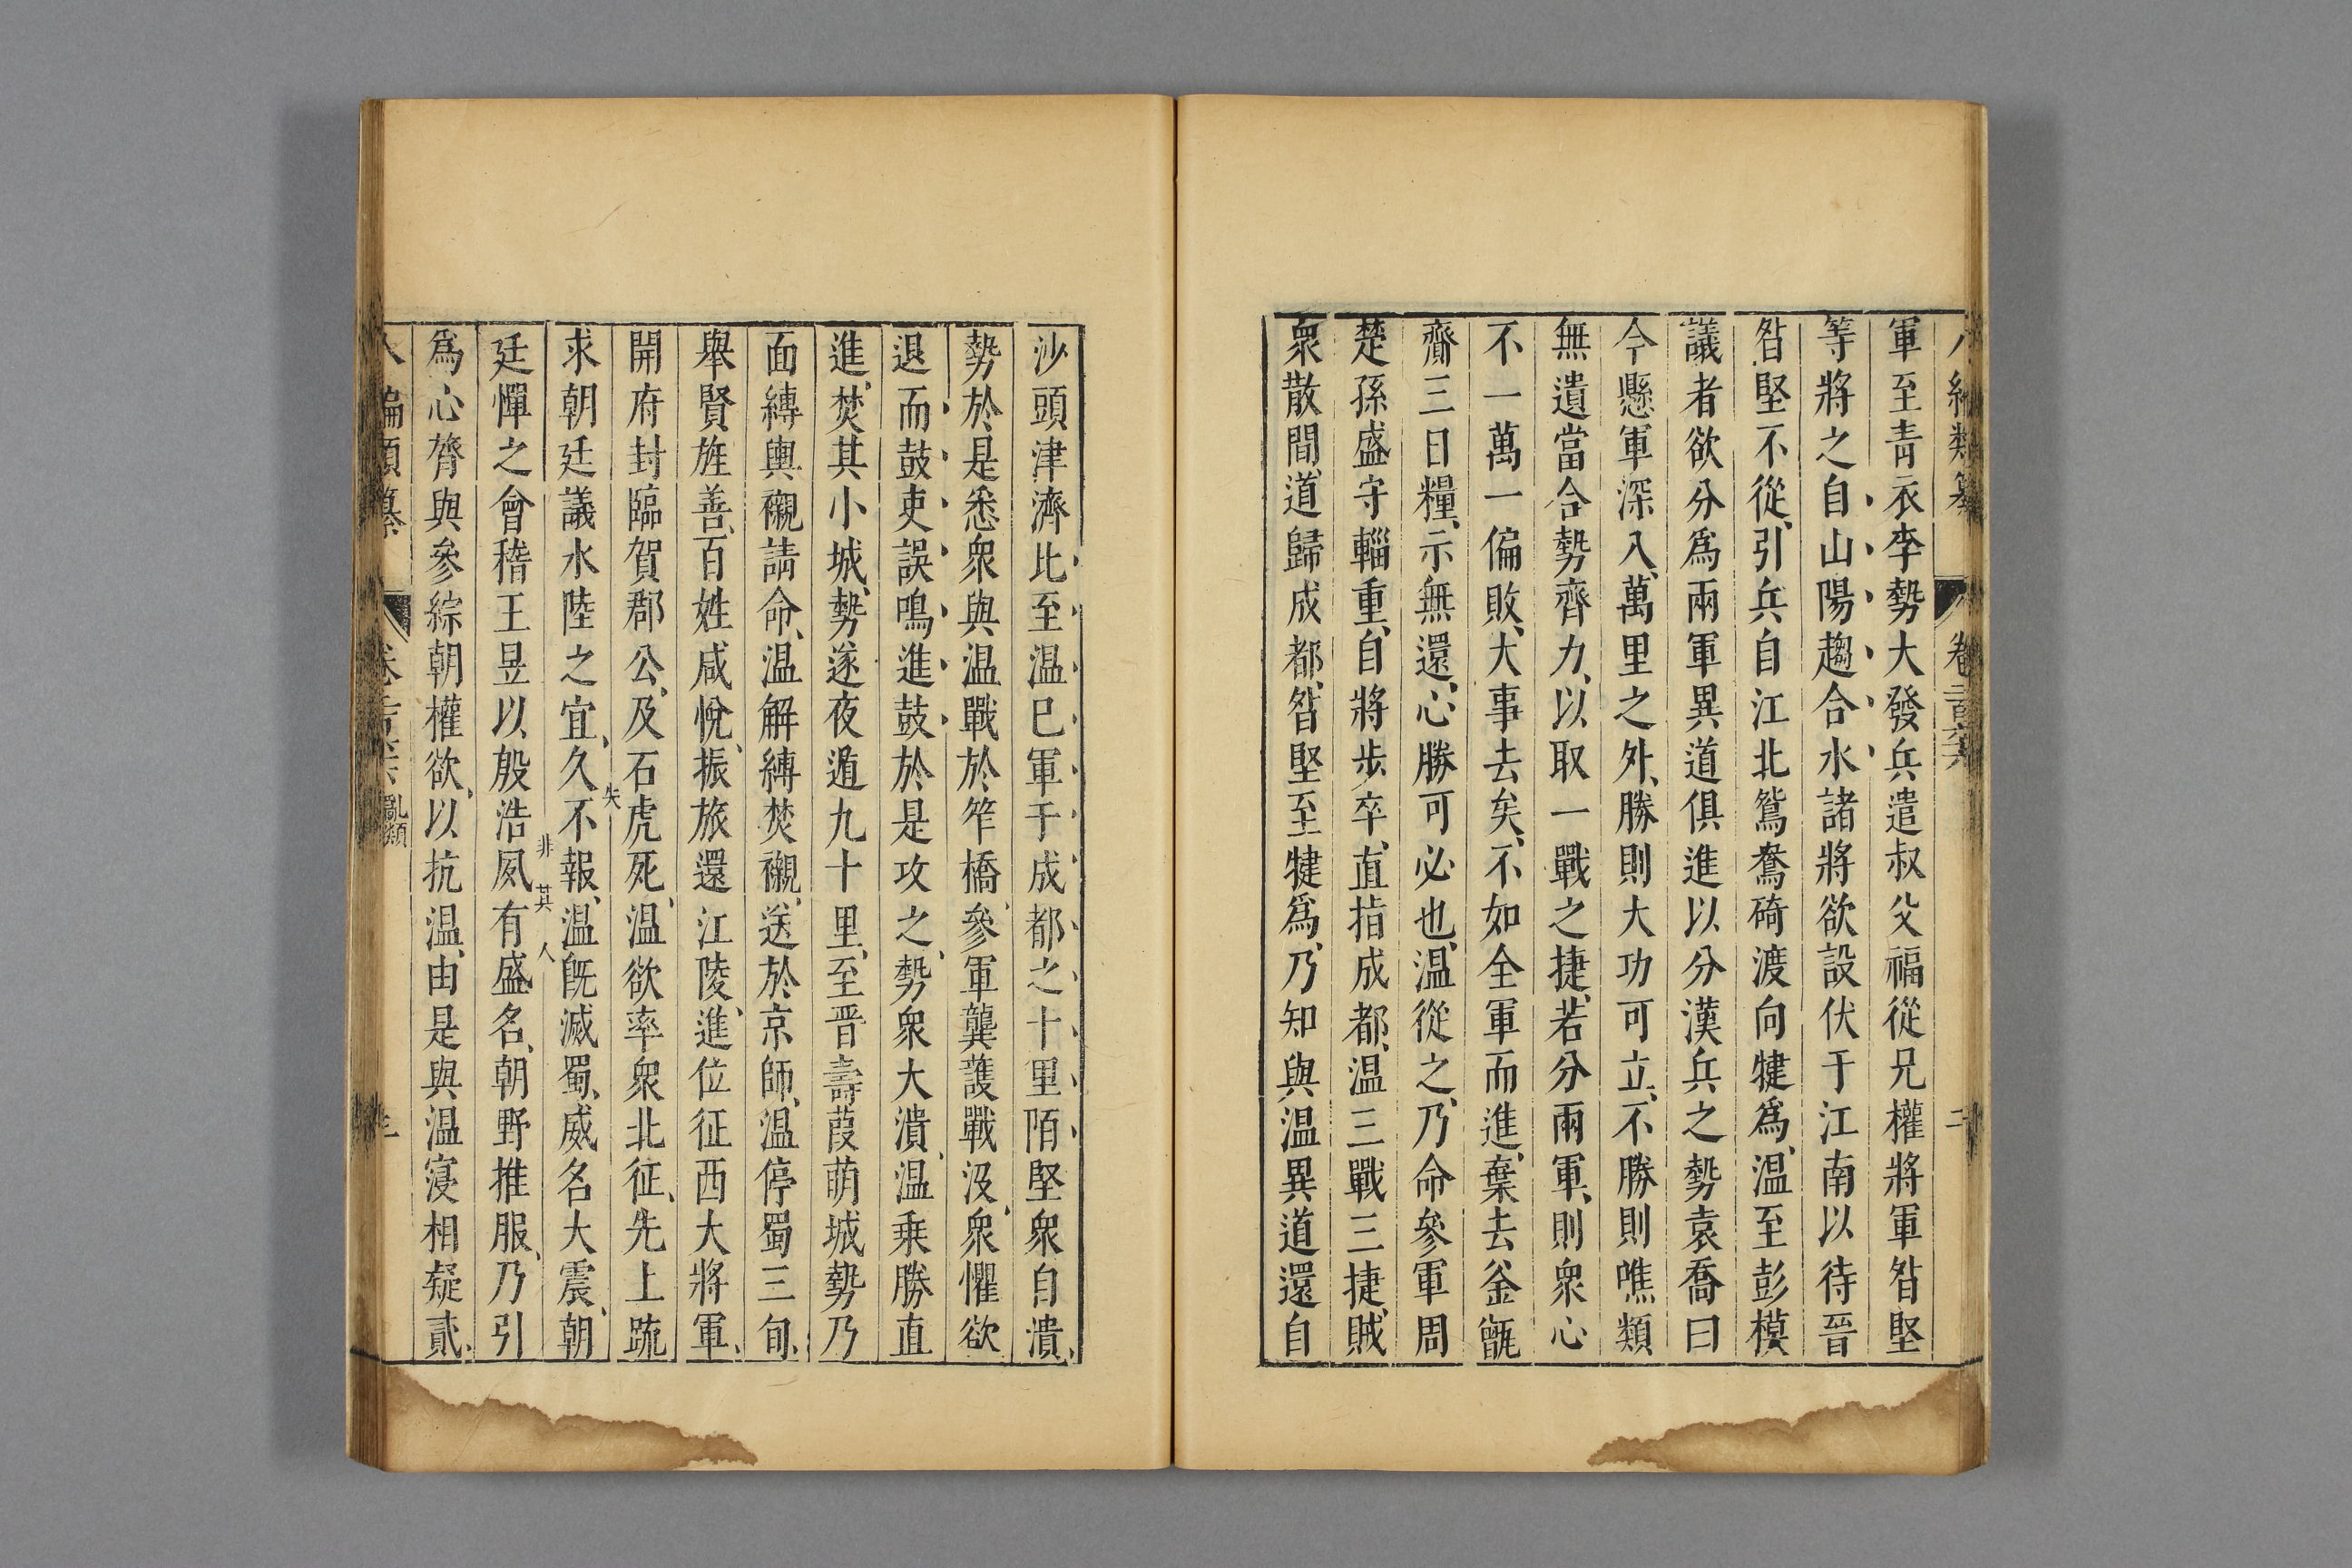 八編類纂 卷二百六 二
軍至青衣李勢大發兵遣叔父福從兄權將軍昝堅
等將之自山陽趨合水諸將欲設伏于江南以待晉
昝堅不從引兵自江北鴛鴦碕渡向犍爲溫至彭模
議者欲分爲兩軍異道俱進以分漢兵之勢袁喬曰
今懸軍深入萬里之外勝則大功可立不勝則噍類
無遺當合勢齊力以取一戰之捷若分兩軍則衆心
不一萬一偏敗大事去矣不如全軍而進棄去釜甑
齎三日糧示無還心勝可必也溫從之乃命參軍周
楚孫盛守輜重自將步卒直指成都溫三戰三捷賊
衆散間道歸成都昝堅至犍爲乃知與溫異道還自
沙頭津濟比至溫已軍于成都之十里陌堅衆自潰
勢於是悉衆與溫戰於笮橋參軍龔護戰沒衆懼欲
退而鼓吏誤鳴進鼓於是攻之勢衆大潰溫乘勝直
進焚其小城勢遂夜遁九十里至晉壽葭萌城勢乃
面縛輿櫬請命溫解縛焚櫬送於京師溫停蜀三旬
舉賢旌善百姓咸悅振旅還江陵進位征西大將軍
開府封臨賀郡公及石虎死溫欲率衆北征先上疏
失
求朝廷議水陸之宜久不報溫旣滅蜀威名大震朝
非其人
廷憚之會稽王昱以殷浩夙有盛名朝野推服乃引
爲心膂與參綜朝權欲以抗溫由是與溫寖相疑貳
八編類纂 卷二百六 亂類 三